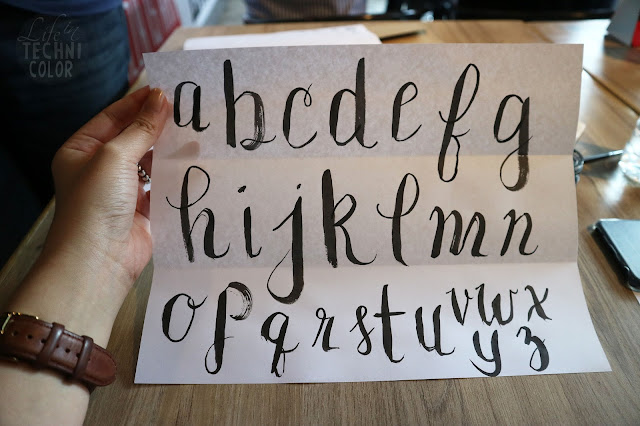 Life in
TECHNI
COLOR
a b c d e f g
h i j k l m n
o p q r s t u v w x
y z